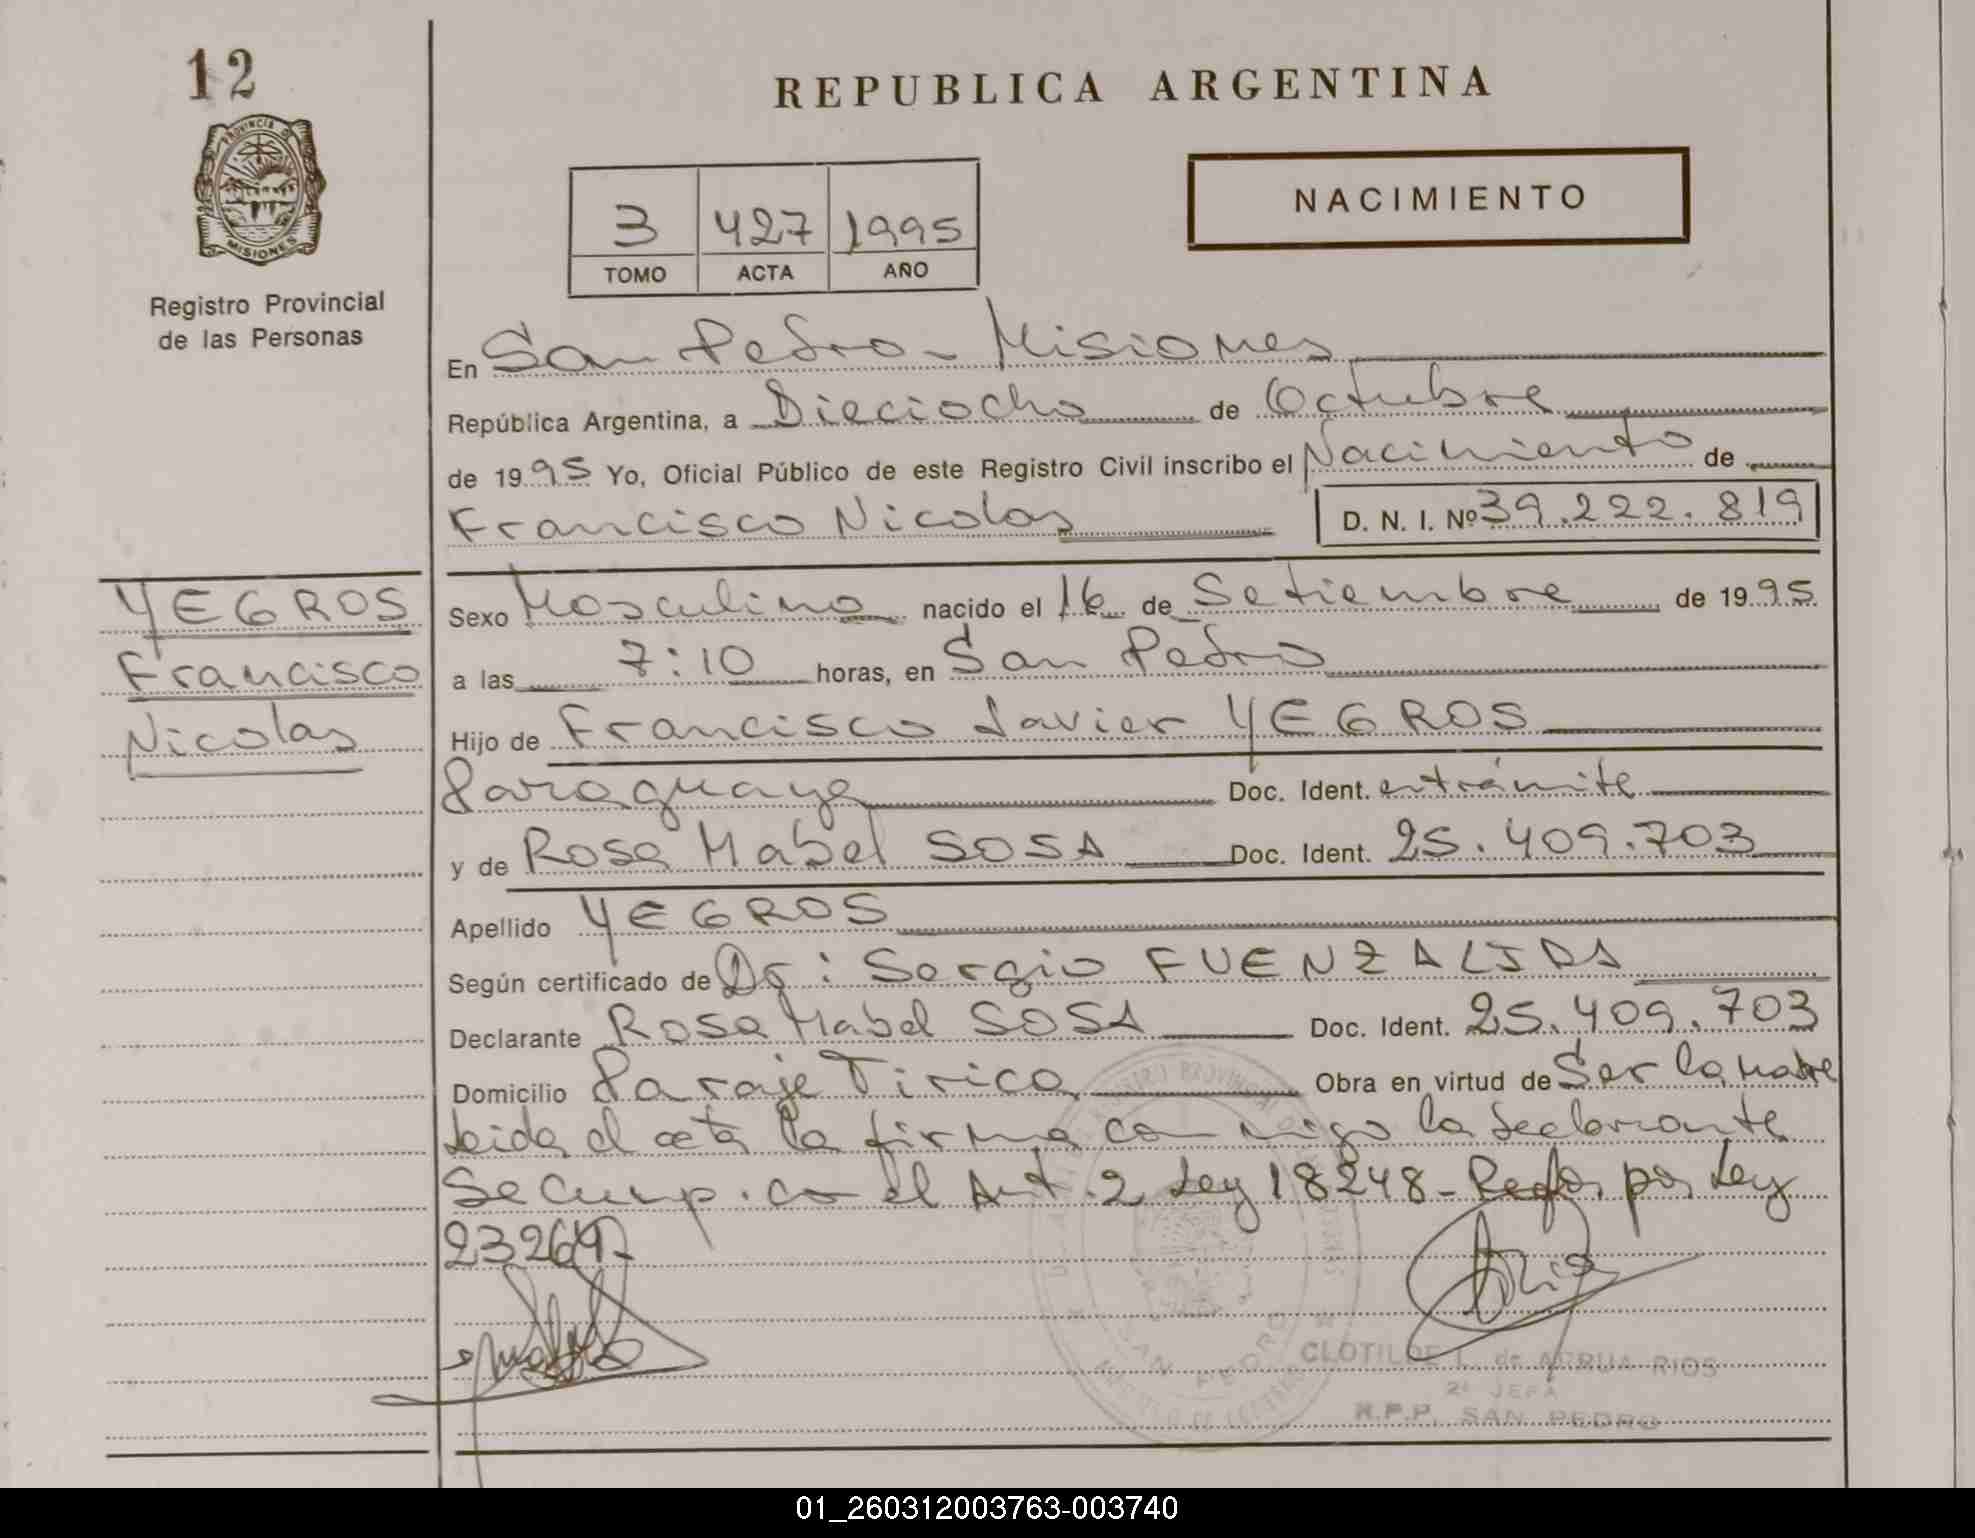 12
REPUBLICA ARGENTINA
PROVINCIA DE
MISIONES
Registro Provincial
de las Personas
NACIMIENTO
3 427 1995
TOMO ACTA AÑO
En San Pedro - Misiones
República Argentina, a Dieciocho de Octubre
de 1995 Yo, Oficial Público de este Registro Civil inscribo el Nacimiento de
Francisco Nicolas D. N. I. Nº 39.222.819
YEGROS
Francisco
Nicolas
Sexo Masculino nacido el 16 de Setiembre de 1995
a las 7:10 horas, en San Pedro
Hijo de Francisco Javier YEGROS
Paraguaya Doc. Ident. entrámite
y de Rosa Mabel SOSA Doc. Ident. 25.409.703
Apellido YEGROS
Según certificado de Dr: Sergio FUENZALIDA
Declarante Rosa Mabel SOSA Doc. Ident. 25.409.703
Domicilio Paraje Tirica Obra en virtud de Ser la madre
Leida el acta la firma con migo la declarante
Se Cump. con el Art. 2 Ley 18248 - por Ley
23264 -
SAN PEDRO
CLOTILDE L. de RIOS
2ª JEFA
R.P.P. SAN PEDRO
01_260312003763-003740